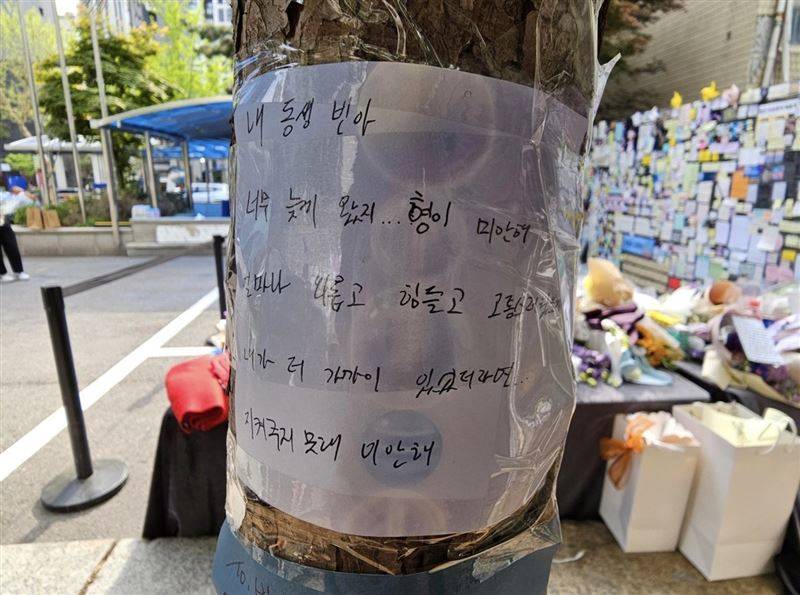 내 동생 빈아
너무 늦게 왔지... 형이 미안해
얼마나 외롭고 힘들고
내가 더 가까이 있었더라면...
지켜주지 못해 미안해
To.